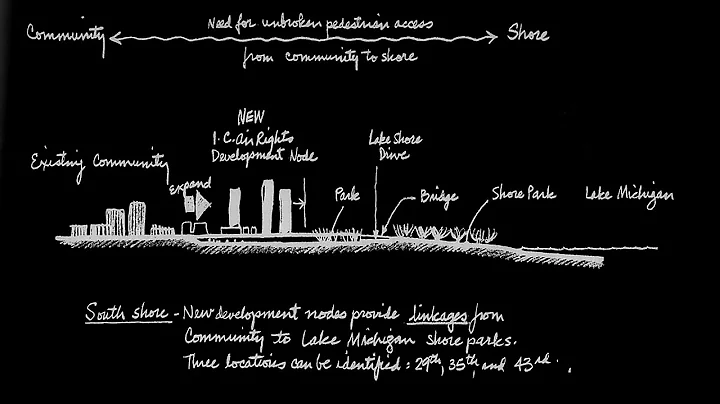 Community
Need for unbroken pedestrian access
Shore
from community to shore
NEW
I.C. Air Rights
Development Node
Lake Shore
Drive
Existing Community
Expand
Park
Bridge
Shore Park
Lake Michigan
South shore - New development nodes provide linkages from
Community to Lake Michigan shore parks.
Three locations can be identified: 29th, 35th, and 43rd.